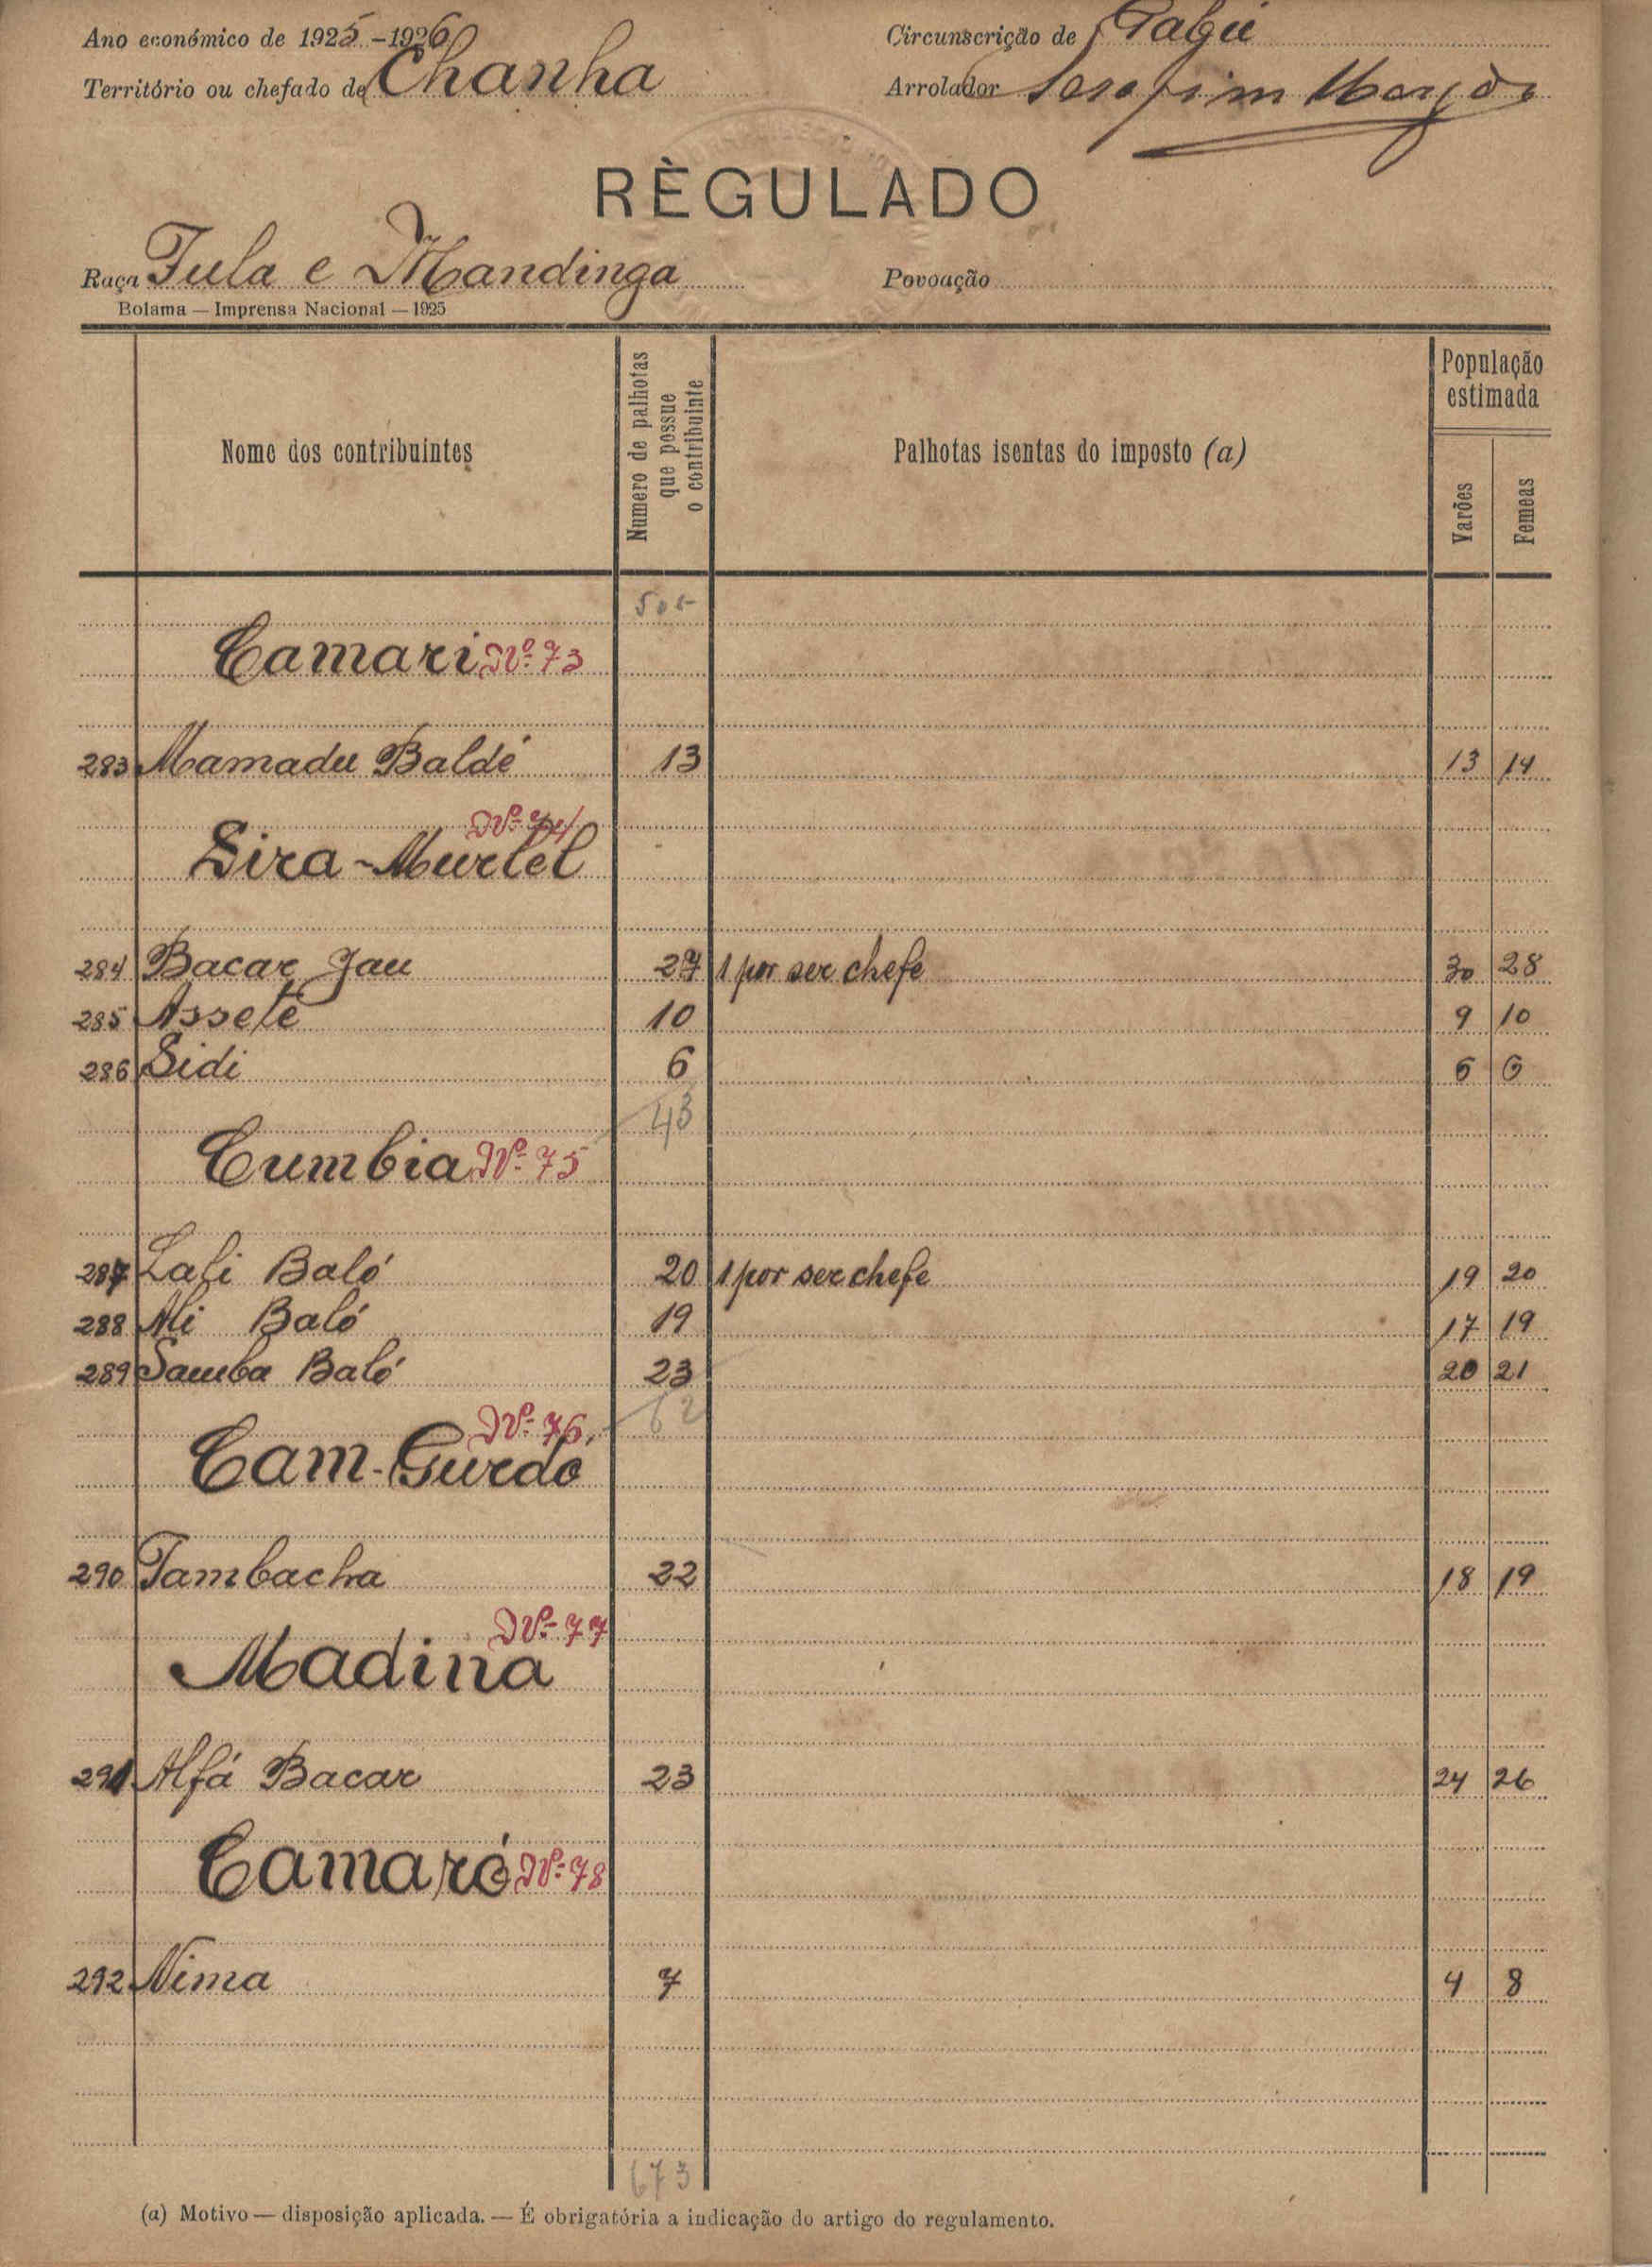 Ano económico de 1925-1926 Circunscrição de Gabú
Território ou chefado de Chanha Arrolador Serafim
RÈGULADO
Raça Fula e Mandinga Povoação
Bolama — Imprensa Nacional — 1925
Nome dos contribuintes
Numero de palhotas que possue o contribuinte
Palhotas isentas do imposto (a)
População estimada
Varões
Femeas
Camari Nº 73
283 Mamadu Baldé 13 13 14
Nº 74
Sira-Murlel
284 Bacar Jau 27 1 por ser chefe 30 28
285 Asseté 10 9 10
286 Sidi 6 6 6
43
Cumbia Nº 75
287 Lali Baló 20 1 por ser chefe 19 20
288 Ali Baló 19 17 19
289 Samba Baló 23 20 21
62
Nº 76
Cam-Gurdó
290 Tambacha 22 18 19
Nº 77
Madina
291 Alfá Bacar 23 24 26
Camaró Nº 78
292 Nima 7 4 8
673
(a) Motivo — disposição aplicada. — É obrigatória a indicação do artigo do regulamento.